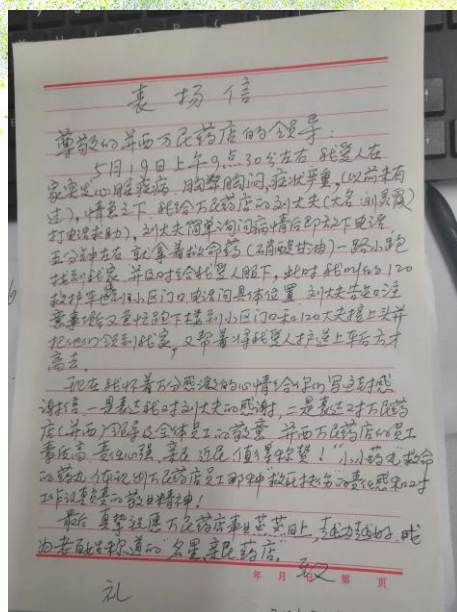 表扬信
尊敬的并西万民药店的领导:
5月19日上午9点30分左右 我爱人在
家突发心脏疾病 胸部胸闷,症状严重,(以前未有
过),情急之下 我给万民药店的刘大夫(大名:刘
打电话求助),刘大夫简单询问病情后即放下电话
五分钟左右 就拿着救命药(硝酸甘油)一路小跑
找到我家 并及时给我爱人服下,此时我叫的120
救护车也到小区门口,电话问具体位置 刘大夫告知注
意事项后又急忙跑下楼到小区门口和120大夫接上头并
把他们领到我家,又帮着将我爱人护送上车后方才
离去。
现在我怀着万分感激的心情给你们写这封感
谢信 一是表达我对刘大夫的感谢,二是表达对万民药
店(并西)领导及全体员工的敬意 并西万民药店的员工
素质高 责任心强 亲民 近民 值得称赞!“小小药丸 救命
的药丸 体现出万民药店员工那种“救死扶伤的责任感和对
工作认真负责的敬业精神!
最后 真挚祝愿万民药店事业蒸蒸日上,越办越好 成
为老百姓称道的“名星 亲民 药店”
致
年 月 日 第 页
礼